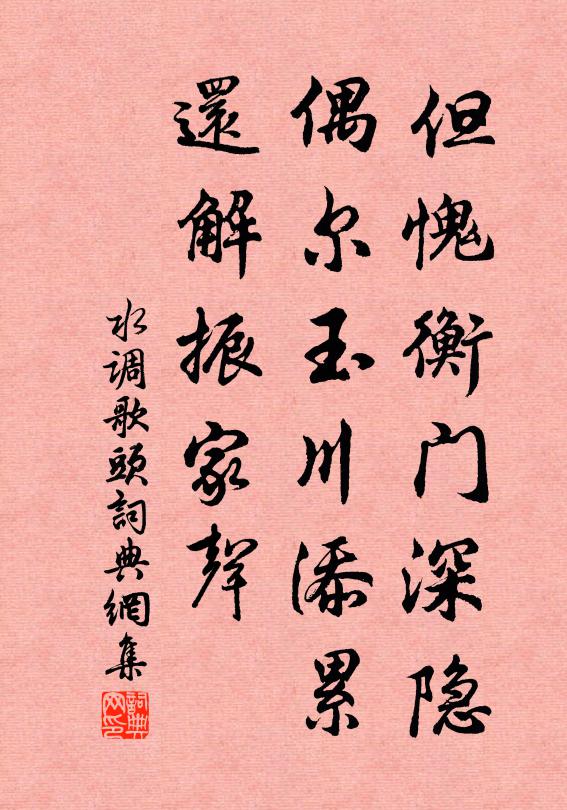 但愧衡门深隐
偶尔玉川添累
還解振家聲
水调歌頭詞典網集
詞典网印